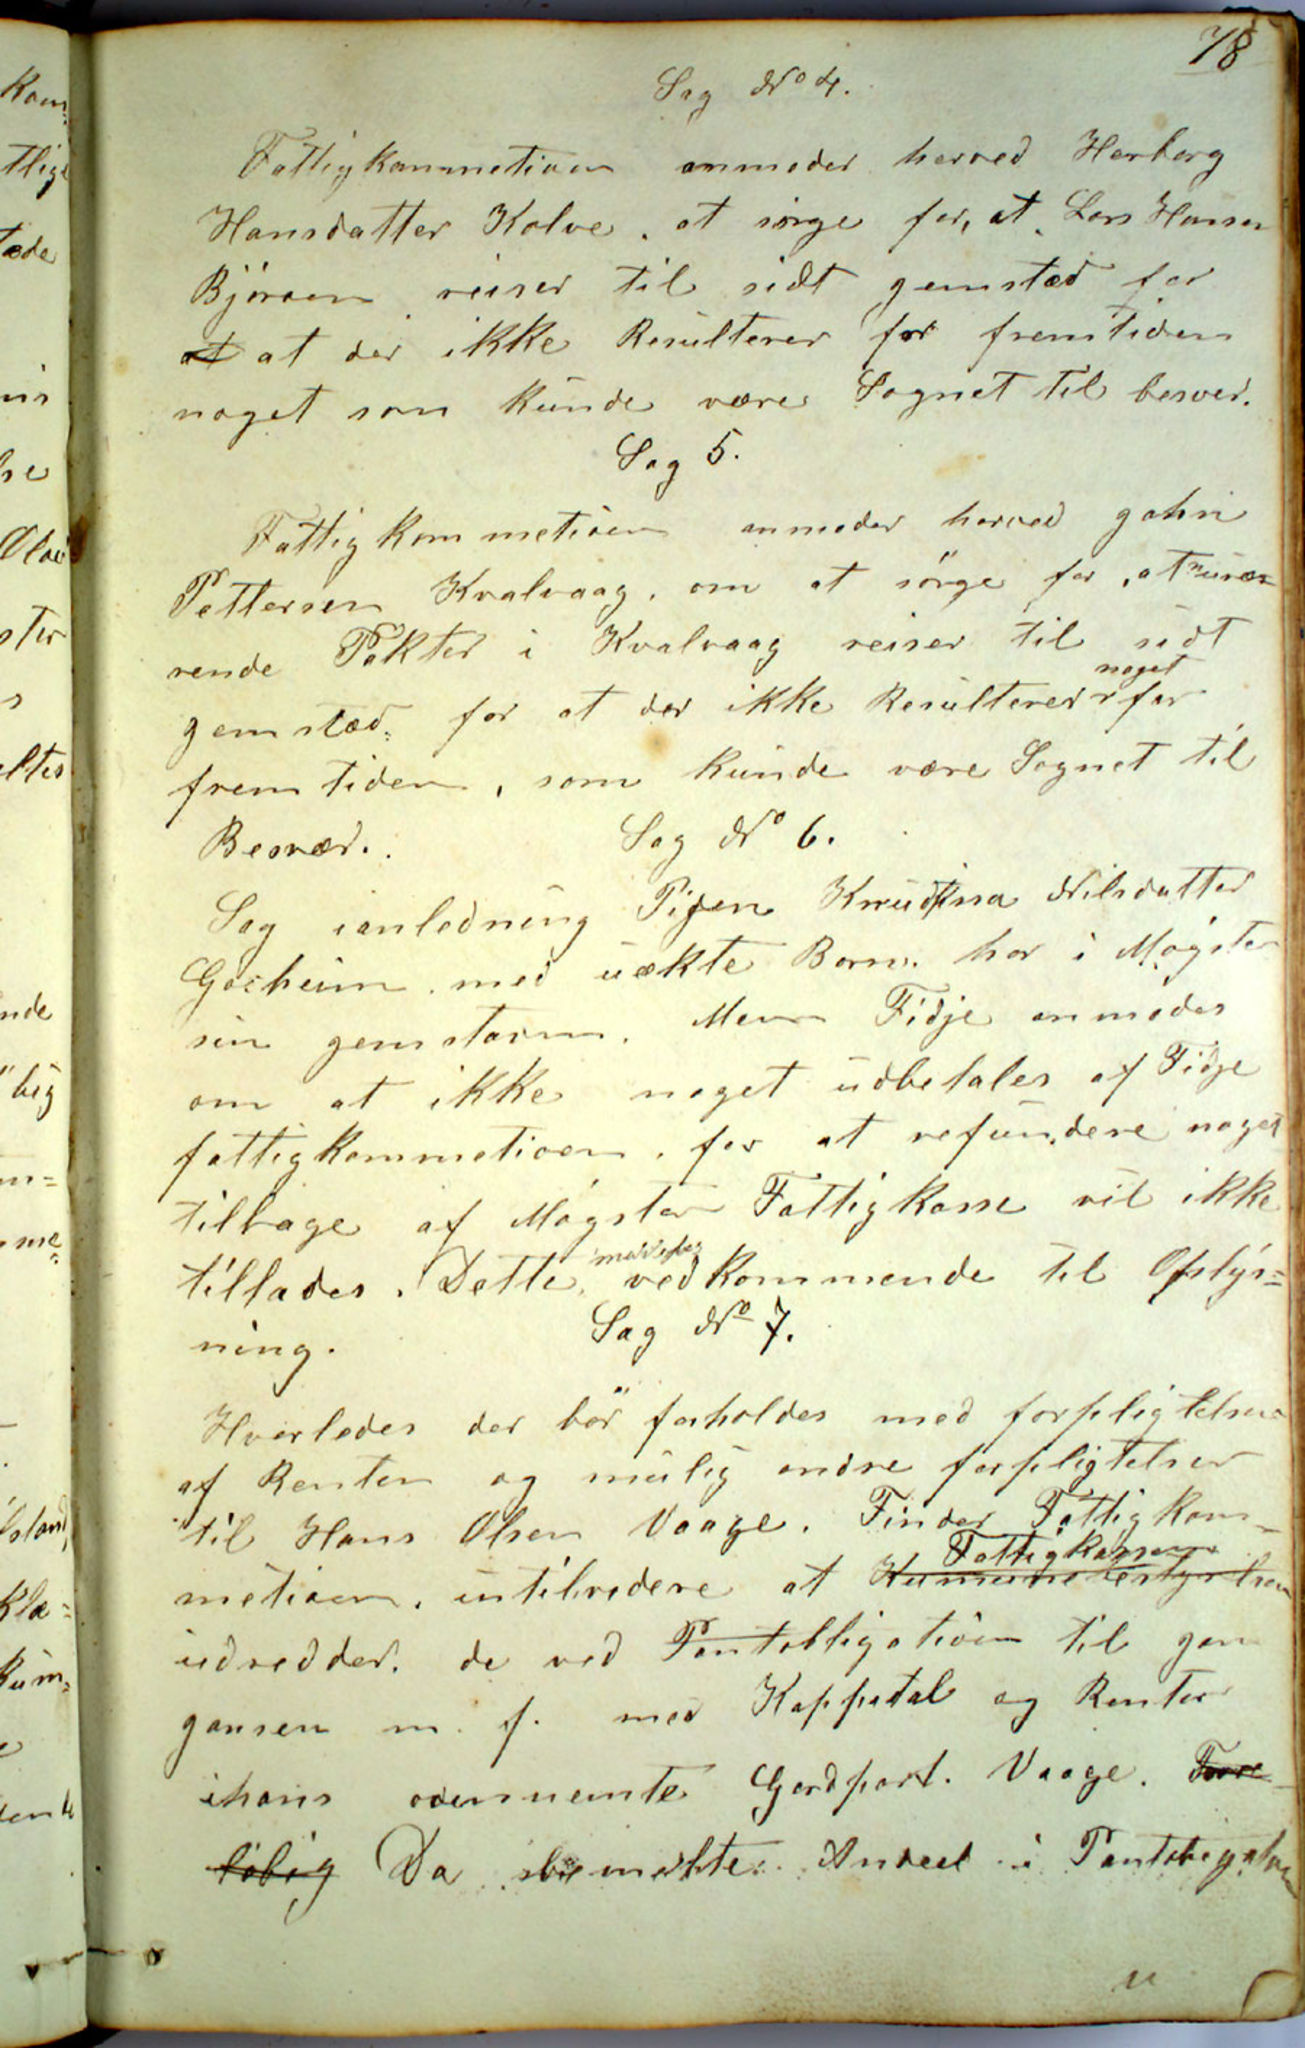 78
Sag No 4.
Fattigkommetioen anmoder herved Herborg
Hansdatter Kolve. at sørge for, at Lars Hansen
Björoen reiser til sidt gemstæd for
at at der ikke Resulterer for fremtiden
noget som kunde være Sognet til besver.
Sag 5.
Fattigkommetioen anmoder herved gohn
Pettersen Kvalvaag. om at sörge for, at
rende Pakter i Kvalvaag reiser til sidt
gemstæd. for at der ikke Resulterer noget for
fremtiden, som kunde være Sognet til
Besvær.
Sag No 6.
Sag ianledning Pigen Knudtina Nilsdatter
med uækte Born. har i Møgster
sin gemstavn. Men Fidje anmodes
om at ikke noget udbetales af Fidje
fattigkommetioen. for at refundere noget
tilbage af Møgster Fattigkasse vil ikke
tillades. Dette meddeles vedkommende til Oplys=
ning.
Sag No 7.
Hvorledes der bör forholdes med forpligtelsen
af Renter og mulig andre forpligtelser
til Hans Olsen Vaage. Finder Fattigkom-
metioen. intilvedere at Kumunebestyrelsen Fattigkassen
udredder. de ved Pantobligatioen til
gansen m. f. med Kappital og Renter
ihans Gardpart. Vaage. Fore
löbig Da Andeel i